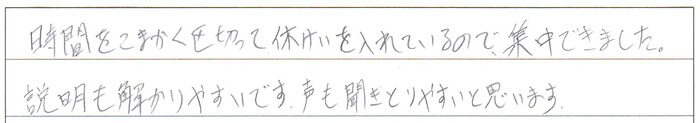 時間をこまかく区切って休けいを入れているので、集中できました。
説明も解かりやすいです。声も聞きとりやすいと思います。